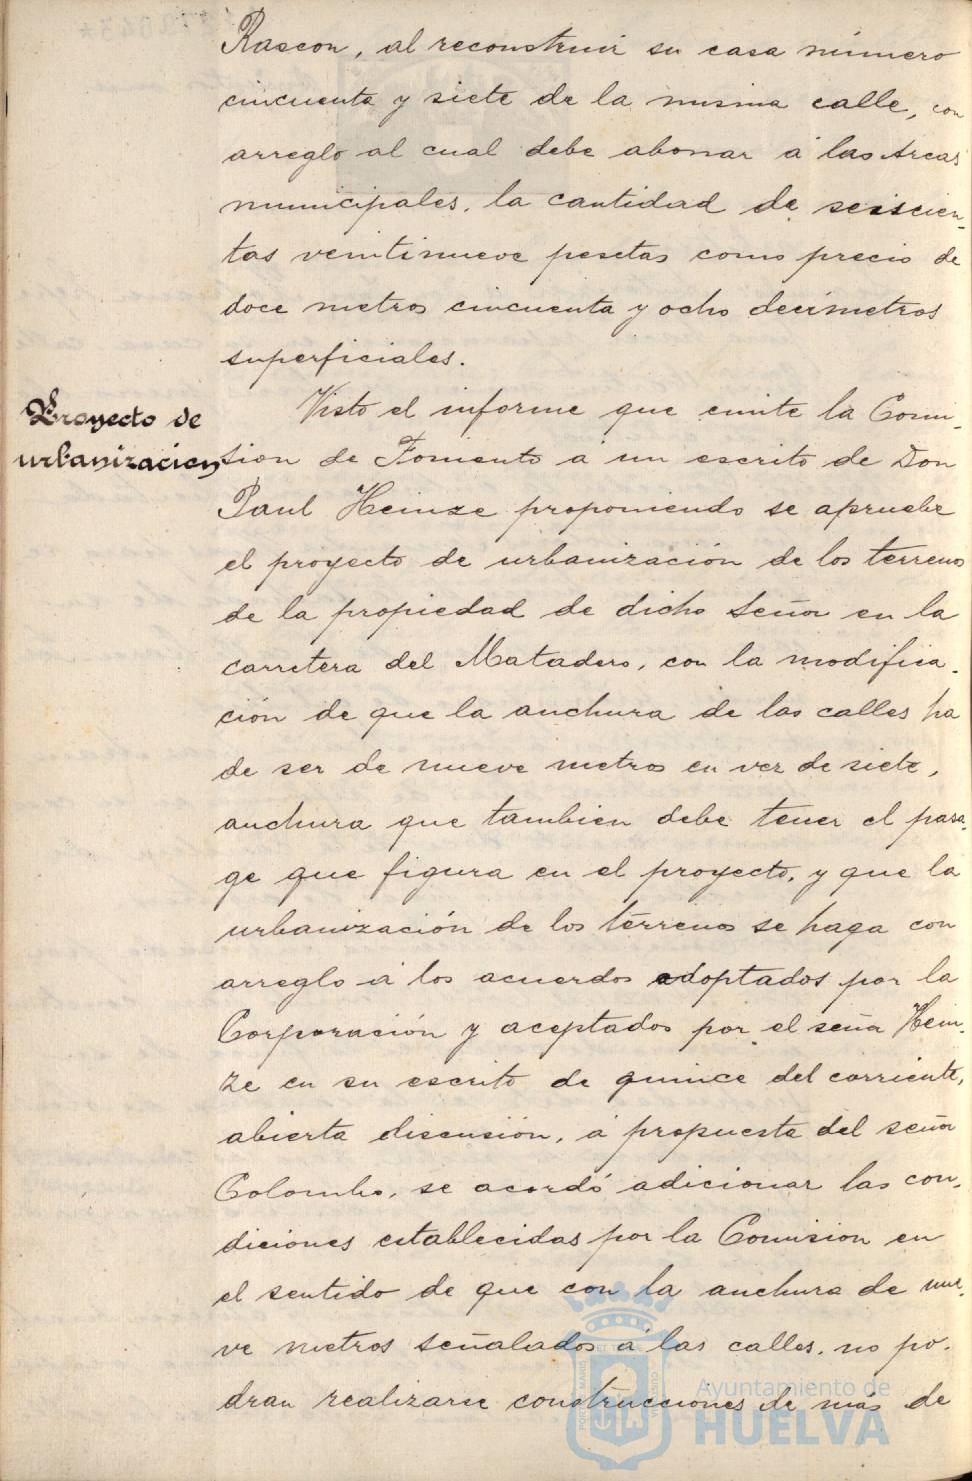 Rascon, al reconstruir su casa número
cincuenta y siete de la misma calle, con
arreglo al cual debe abonar á las Arcas
municipales, la cantidad de seiscien-
tas veintinueve pesetas como precio de
doce metros cincuenta y ocho decímetros
superficiales.
Proyecto de
urbanizacion
Visto el informe que emite la Comi-
sion de Fomento a un escrito de Don
Paul Heinze proponiendo se apruebe
el proyecto de urbanización de los terrenos
de la propiedad de dicho Señor en la
carretera del Matadero, con la modifica-
ción de que la anchura de las calles ha
de ser de nueve metros en vez de siete,
anchura que tambien debe tener el pasa-
ge que figura en el proyecto, y que la
urbanización de los terrenos se haga con
arreglo á los acuerdos adoptados por la
Corporación y aceptados por el señor Hein-
ze en su escrito de quince del corriente,
abierta discusión, á propuesta del señor
Colombo, se acordó adicionar las con-
diciones establecidas por la Comision en
el sentido de que con la anchura de nue-
ve metros señalados á las calles, no po-
dran realizarse construcciones de más de
Ayuntamiento de
HUELVA